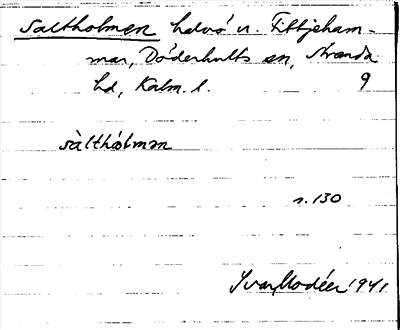 Saltholmen halvö v. Fittjeham-
mar, Döderhults sn, Stranda
hd, Kalm. l. 9
sàlthólmən
s. 130
Ivar Modéer 1941